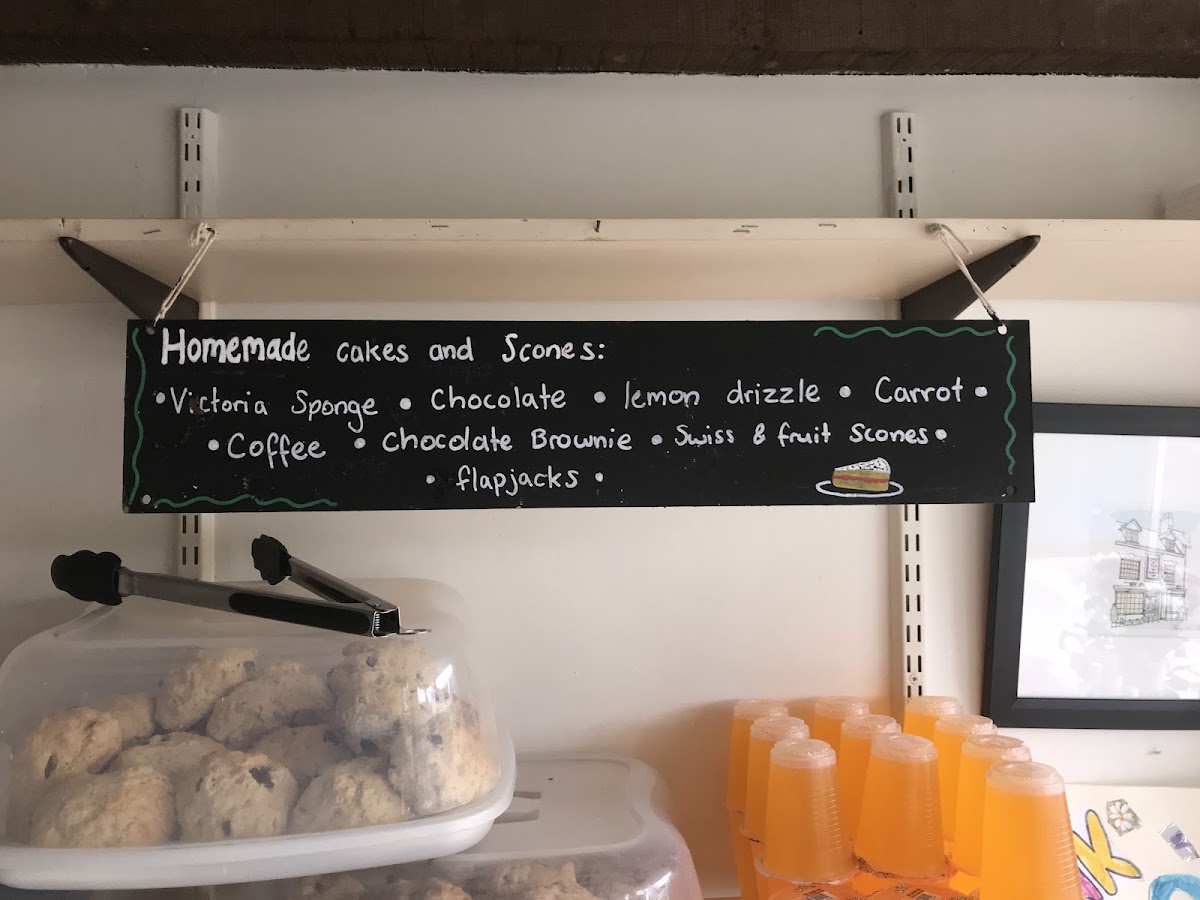 Homemade cakes and Scones:
•Victoria Sponge • Chocolate • lemon drizzle • Carrot •
•Coffee • Chocolate Brownie • Swiss & fruit Scones•
• flapjacks •